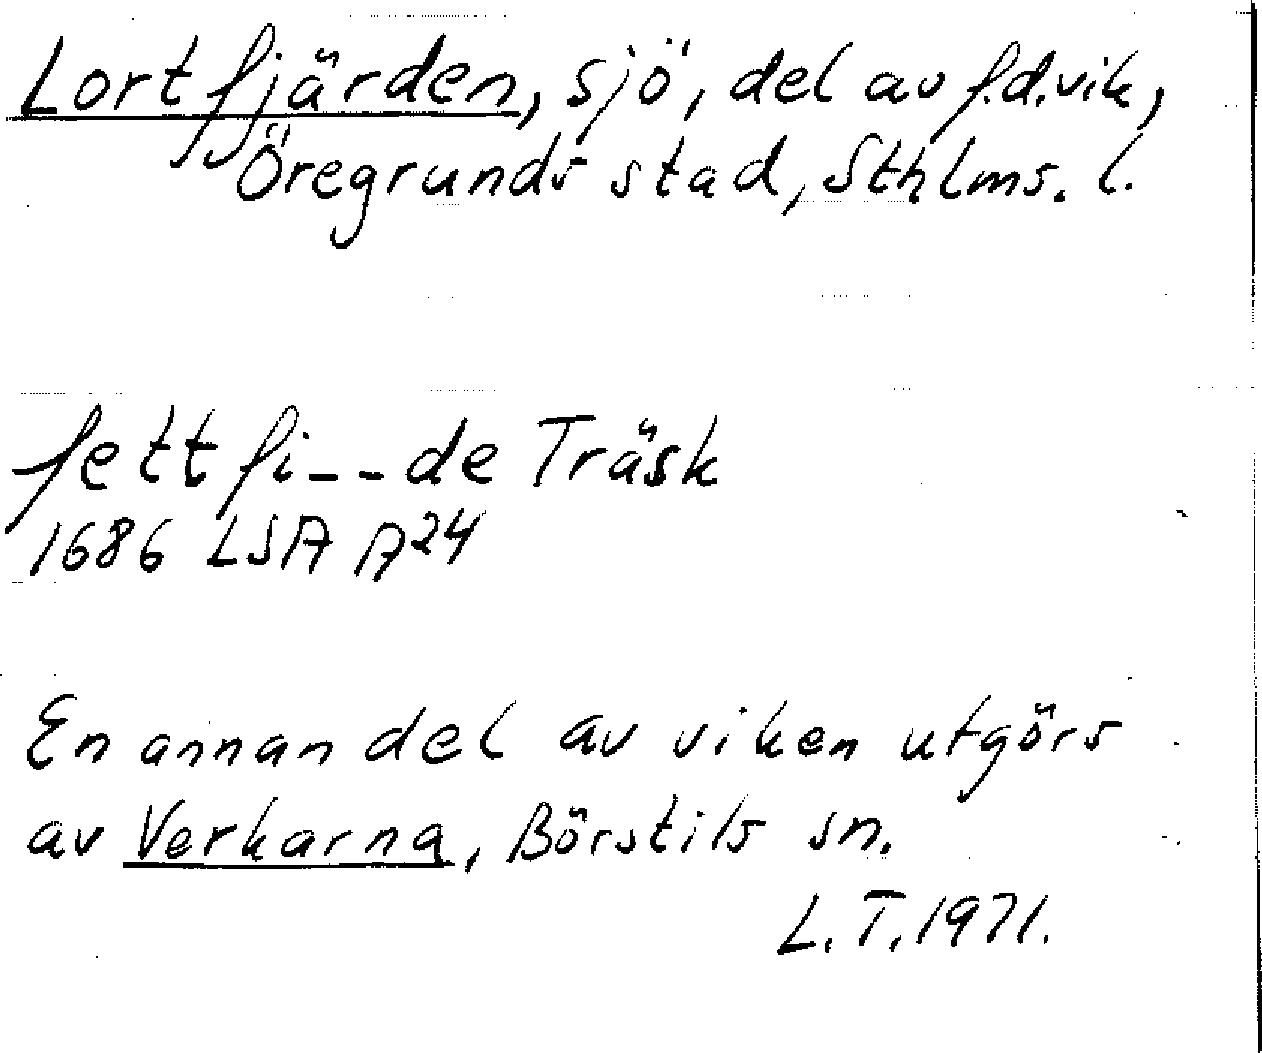 Lortfjärden, sjö, del av f.d. vik,
Öregrunds stad, Sthlms. l.
fettfi_ _de Träsk
1686 LSA A24
En annan del av viken utgörs
av Verkarna, Börstils sn.
L.T. 1971.